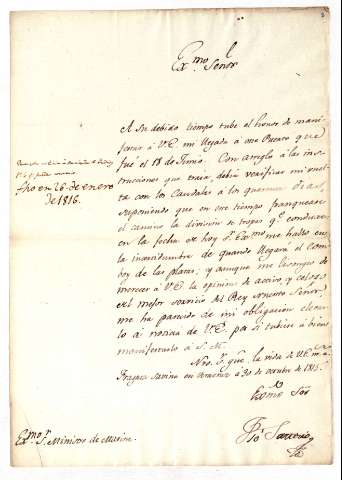 Exmo. Señor
A su debido tiempo tube el honor de mani-
festar á V.E. mi llegada á ese Puerto que
fué el 18 de Junio. Con arreglo á las ins-
trucciones que traia debia verificar mi vuel-
ta con los Caudales á los quarenta dias,
suponiendo que en ese tiempo franquearia
el camino la division de tropas qe. conducia
en la fecha de hoy Sr. Exmo. me hallo en
la incertidumbre de quando llegará el Com-
boy de las platas; y aunque me lisongeo de
merecer á V.E. la opinion de activo y celoso
del mejor servicio del Rey nuestro Señor
me ha parecido de mi obligacion elevar-
lo á noticia de V.E. por si tubiere á bien
manifestarlo á S.M.
Nro. Sr. gue. la vida de V.E. m. a.
Fragata Sabina en Veracruz á 30 de octubre de 1815.
Exmo. Sor.
fho en 26 de enero
de 1816.
Exmo. Sr. Ministro de Marina.